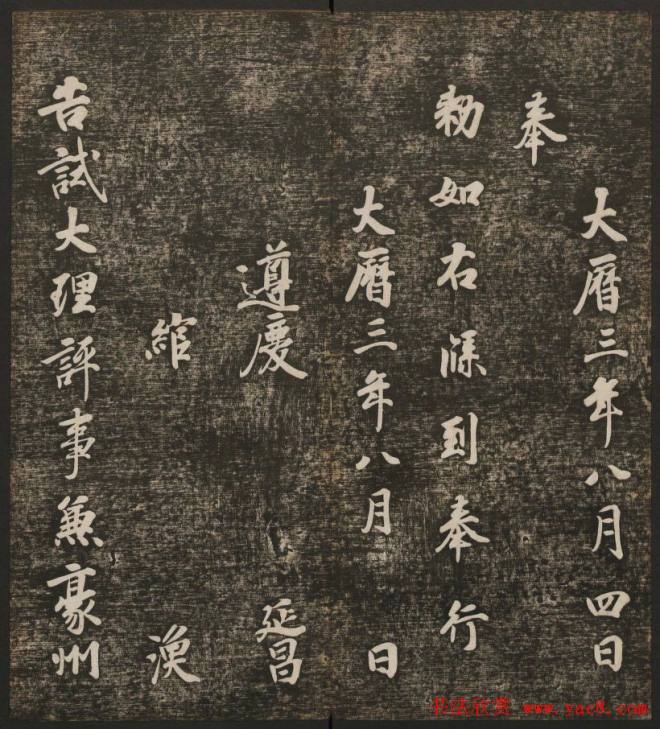 大曆三年八月四日
奉
勑如右牒到奉行
大曆三年八月 日
遵慶 延昌
綰 渙
告試大理評事兼豪州
书法欣赏 www.yac8.com